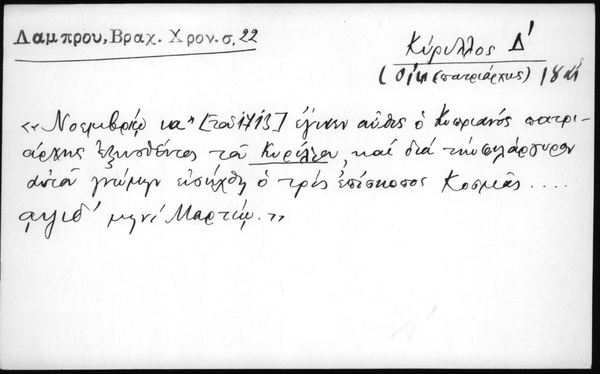 Λαμπρου, Βραχ. Χρον. σ. 22
Κύριλλος Δ'
(Οἰκ. πατριάρχης) 18
«Νοεμβρίῳ κα" [τοῦ 1713] ἐγένεν αὖθις ὁ Κυπριανός πατρι-
άρχης ἐξωσθέντος τοῦ Κυρίλλου, καί διά τήν φιλάργυρον
αὐτοῦ γνώμην εἰσήχθη ὁ τρίς ἐπίσκοπος Κοσμᾶς....
αψιδ' μηνί Μαρτίῳ.»